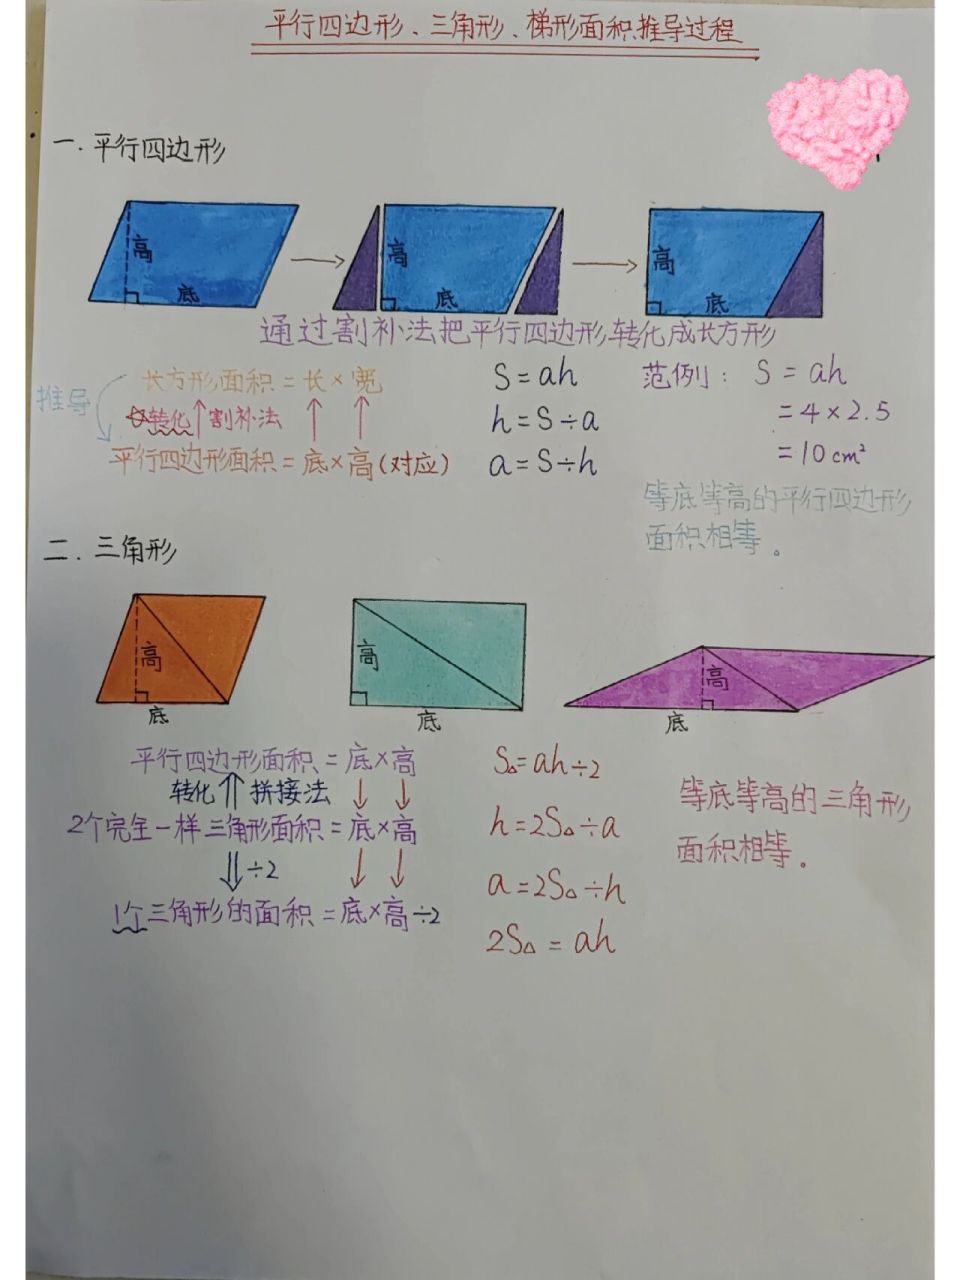 平行四边形、三角形、梯形面积推导过程
一.平行四边形
高
底
高
底
高
底
通过割补法把平行四边形转化成长方形
推导
长方形面积=长×宽
转化 割补法
平行四边形面积=底×高(对应)
S=ah
h=S÷a
a=S÷h
范例: S=ah
=4×2.5
=10cm²
等底等高的平行四边形
面积相等。
二.三角形
高
底
高
底
高
底
平行四边形面积=底×高
转化 拼接法
2个完全一样三角形面积=底×高
÷2
1个三角形的面积=底×高÷2
S△=ah÷2
h=2S△÷a
a=2S△÷h
2S△=ah
等底等高的三角形
面积相等。